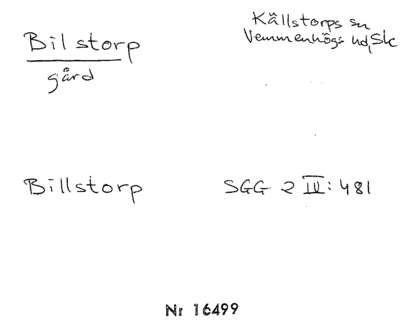 Bilstorp
gård
Källstorps sn
Vemmenhögs hd, Sk
Billstorp SGG 2 IV: 481
Nr 16499